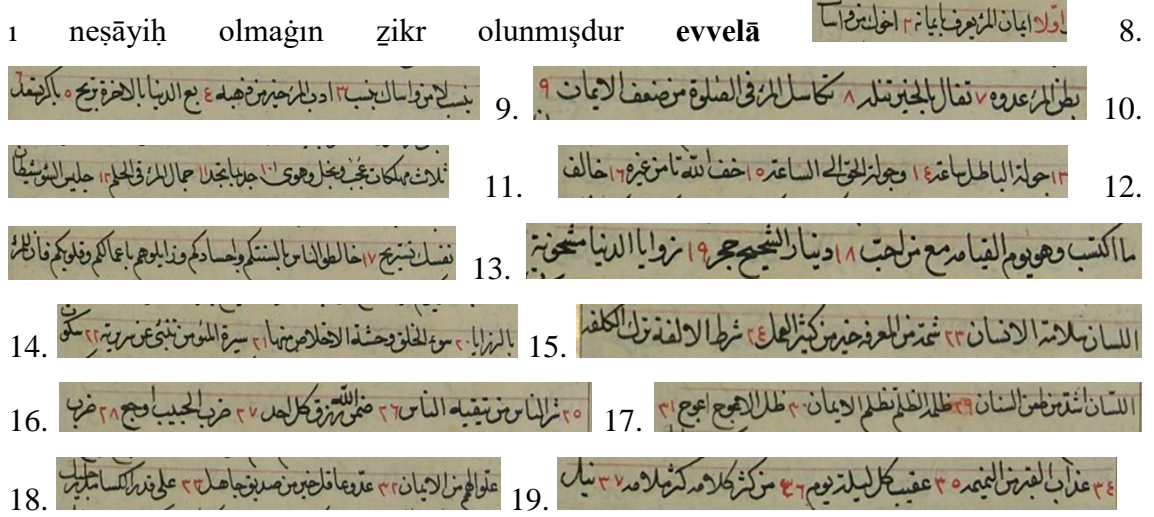 ı neṣāyiḥ olmaġın ẕikr olunmışdur evvelā اوّلا ايمان المرء يعرف بايمانه ٢ اخوك من واسا 8.
بنسب لا من واساك بنسب ٣ ادب المرء خير من ذهبه ٤ بع الدنيا بالاخرة تربح ٥ باكر تسعد ٦ 9. بطن المرء عدوه ٧ تفال بالخير تنله ٨ تكاسل المرء فى الصلوة من ضعف الايمان ٩ 10.
ثلاث مهلكات عجب وبخل وهوى ١٠ جد بما تجد ١١ جمال المرء فى الحلم ١٢ جليس السوء شيطان 11. ١٣ جولة الباطل ساعة ١٤ وجولة الحق الى الساعة ١٥ خف الله تامن غيره ١٦ خالف 12.
نفسك تستريح ١٧ خالطوا الناس بالسنتكم واجسادكم وزايلوهم باعمالكم وقلوبكم فان للمرء 13. ما اكتسب وهو يوم القيامه مع من احب ١٨ دينار الشحيح حجر ١٩ زوايا الدنيا مشحونة
14. بالرزايا ٢٠ سوء الخلق وحشة لا خلاص منها ٢١ سيرة المؤمن تنبئ عن سريرته ٢٢ سكوت 15. اللسان سلامة الانسان ٢٣ شمة من المعرفة خير من كثير العمل ٢٤ شرط الالفة ترك الكلفة
16. ٢٥ شر الناس من يتقيه الناس ٢٦ ضمن الله رزق كل احد ٢٧ ضرب الحبيب اوجع ٢٨ ضرب 17. اللسان اشد من طعن السنان ٢٩ ظلمة الظلم تظلم الايمان ٣٠ ظل الاعوج اعوج ٣١
18. علو الهمم من الايمان ٣٢ عدو عاقل خير من صديق جاهل ٣٣ على قدر الكسا مد رجليك 19. ٣٤ عذاب القبر من النميمه ٣٥ عقيب كل ليلة يوم ٣٦ من كثر كلامه كثر ملامه ٣٧